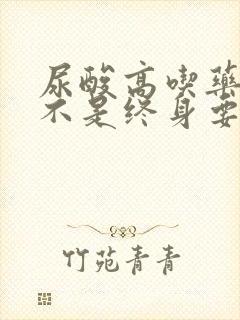 尿酸高喫藥
不是终身要
竹苑青青